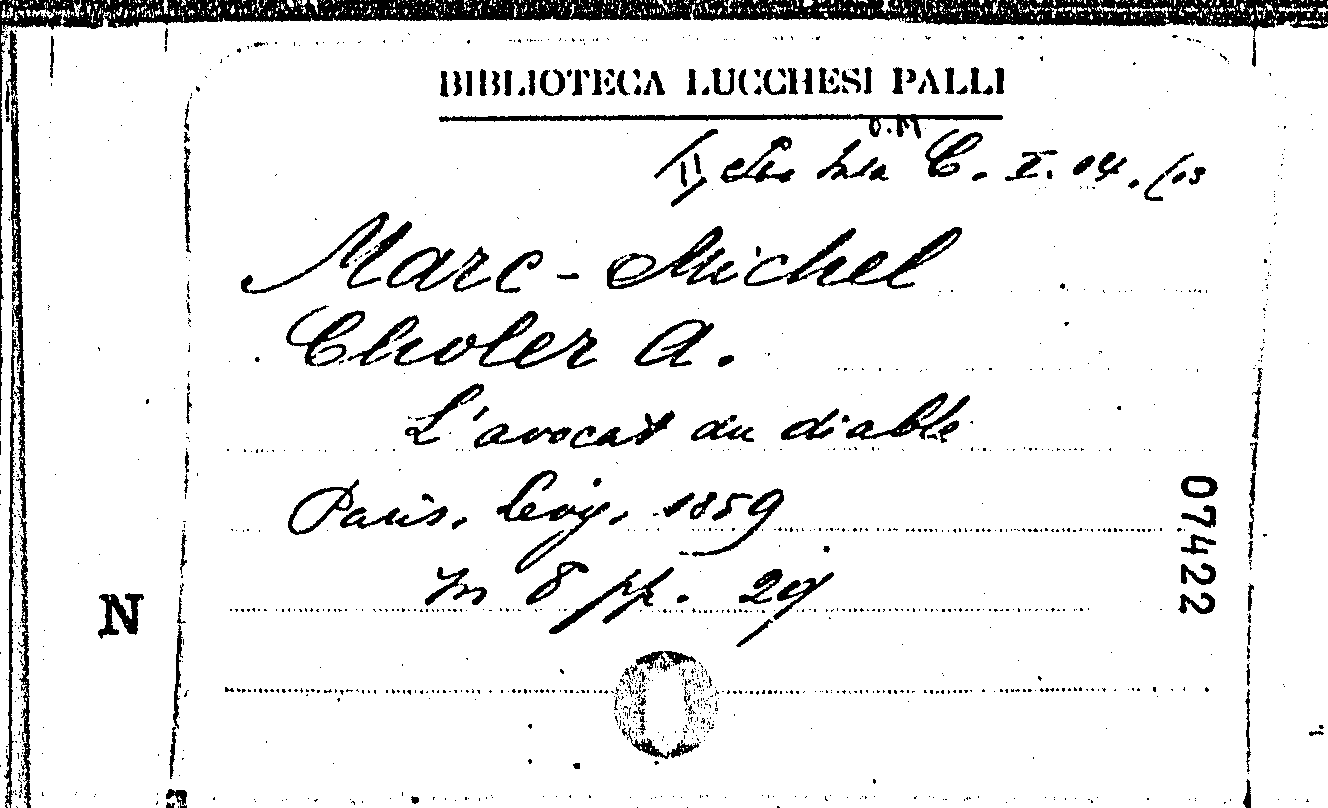 BIBLIOTECA LUCCHESI PALLI
C. X. 04. (13
Marc-Michel
Choler A.
L'avocat du diable
Paris, Levy, 1859
in 8 pp. 29
07422
N